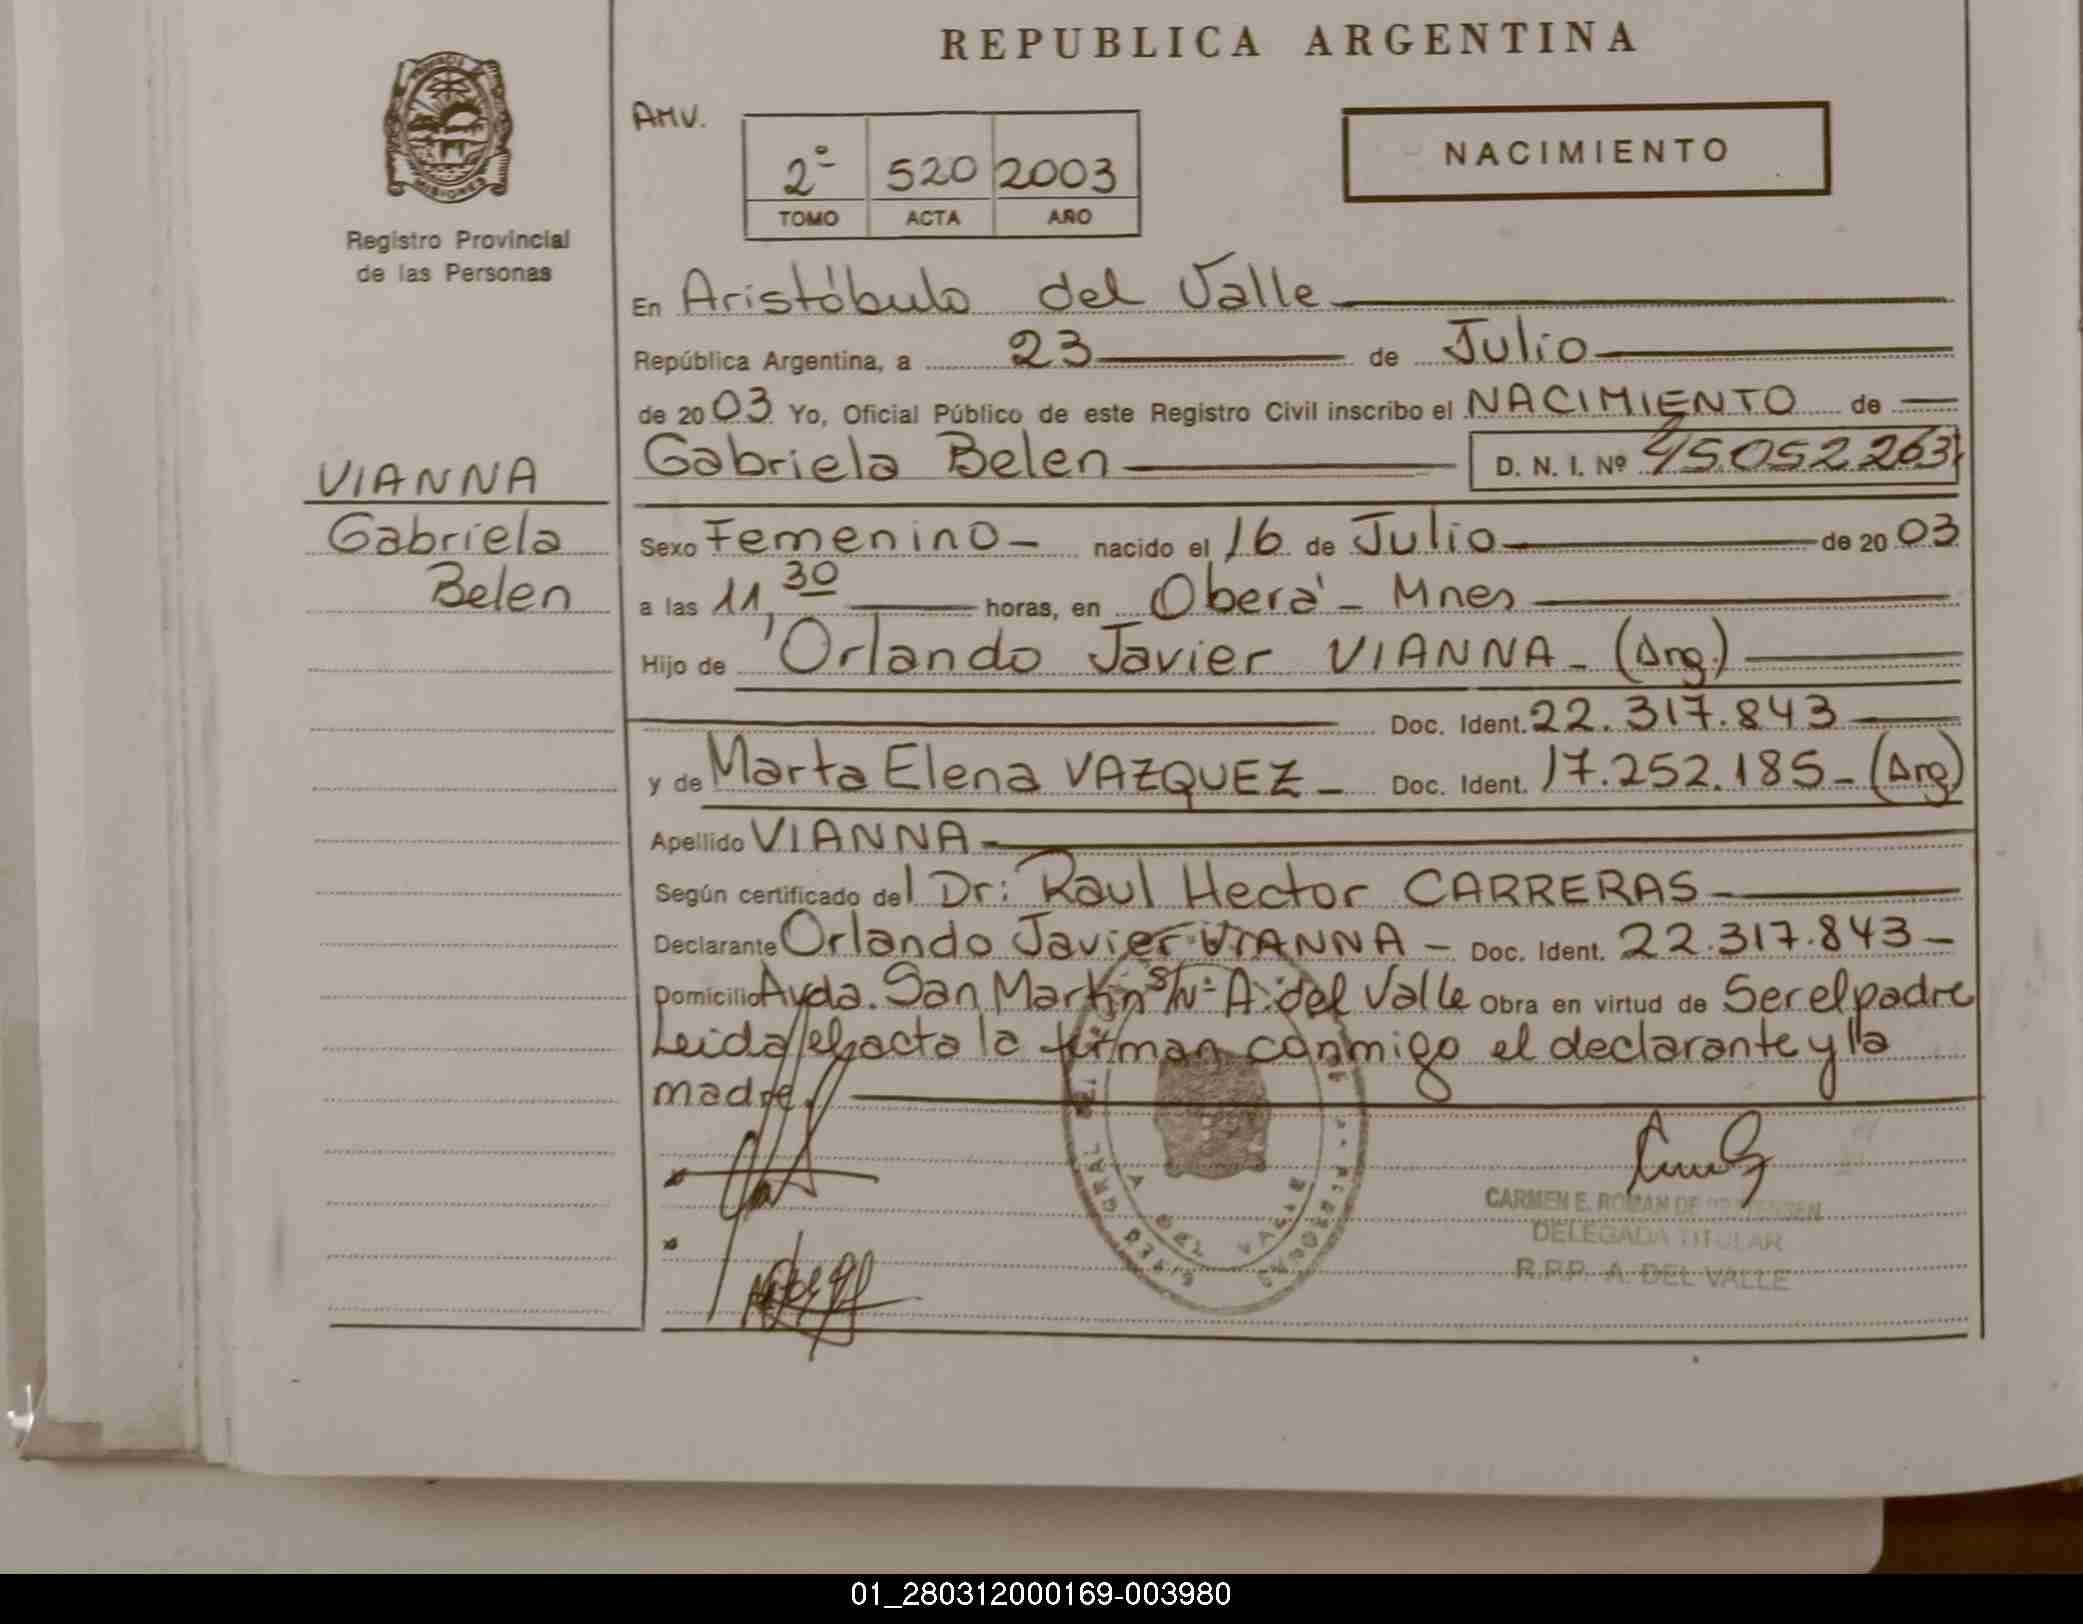 REPUBLICA ARGENTINA
PROVINCIA DE
MISIONES
Registro Provincial
de las Personas
AMV.
2º 520 2003
TOMO ACTA AÑO
NACIMIENTO
En Aristóbulo del Valle
República Argentina, a 23 de Julio
de 2003 Yo, Oficial Público de este Registro Civil inscribo el NACIMIENTO de
Gabriela Belen D. N. I. Nº 45052263
VIANNA
Gabriela
Belen
Sexo Femenino - nacido el 16 de Julio de 2003
a las 11,30 horas, en Oberá - Mnes
Hijo de Orlando Javier VIANNA - (Arg.)
Doc. Ident. 22.317.843
y de Marta Elena VAZQUEZ - Doc. Ident. 17.252.185 - (Arg)
Apellido VIANNA
Según certificado del Dr: Raul Hector CARRERAS
Declarante Orlando Javier VIANNA - Doc. Ident. 22.317.843 -
Domicilio Avda. San Martín S/Nº A. del Valle Obra en virtud de Ser el padre
Leida el acta la firman conmigo el declarante y la
madre.
CARMEN E. ROMAN DE
DELEGADA TITULAR
R.P.P. A. DEL VALLE
A DEL VALLE
01_280312000169-003980